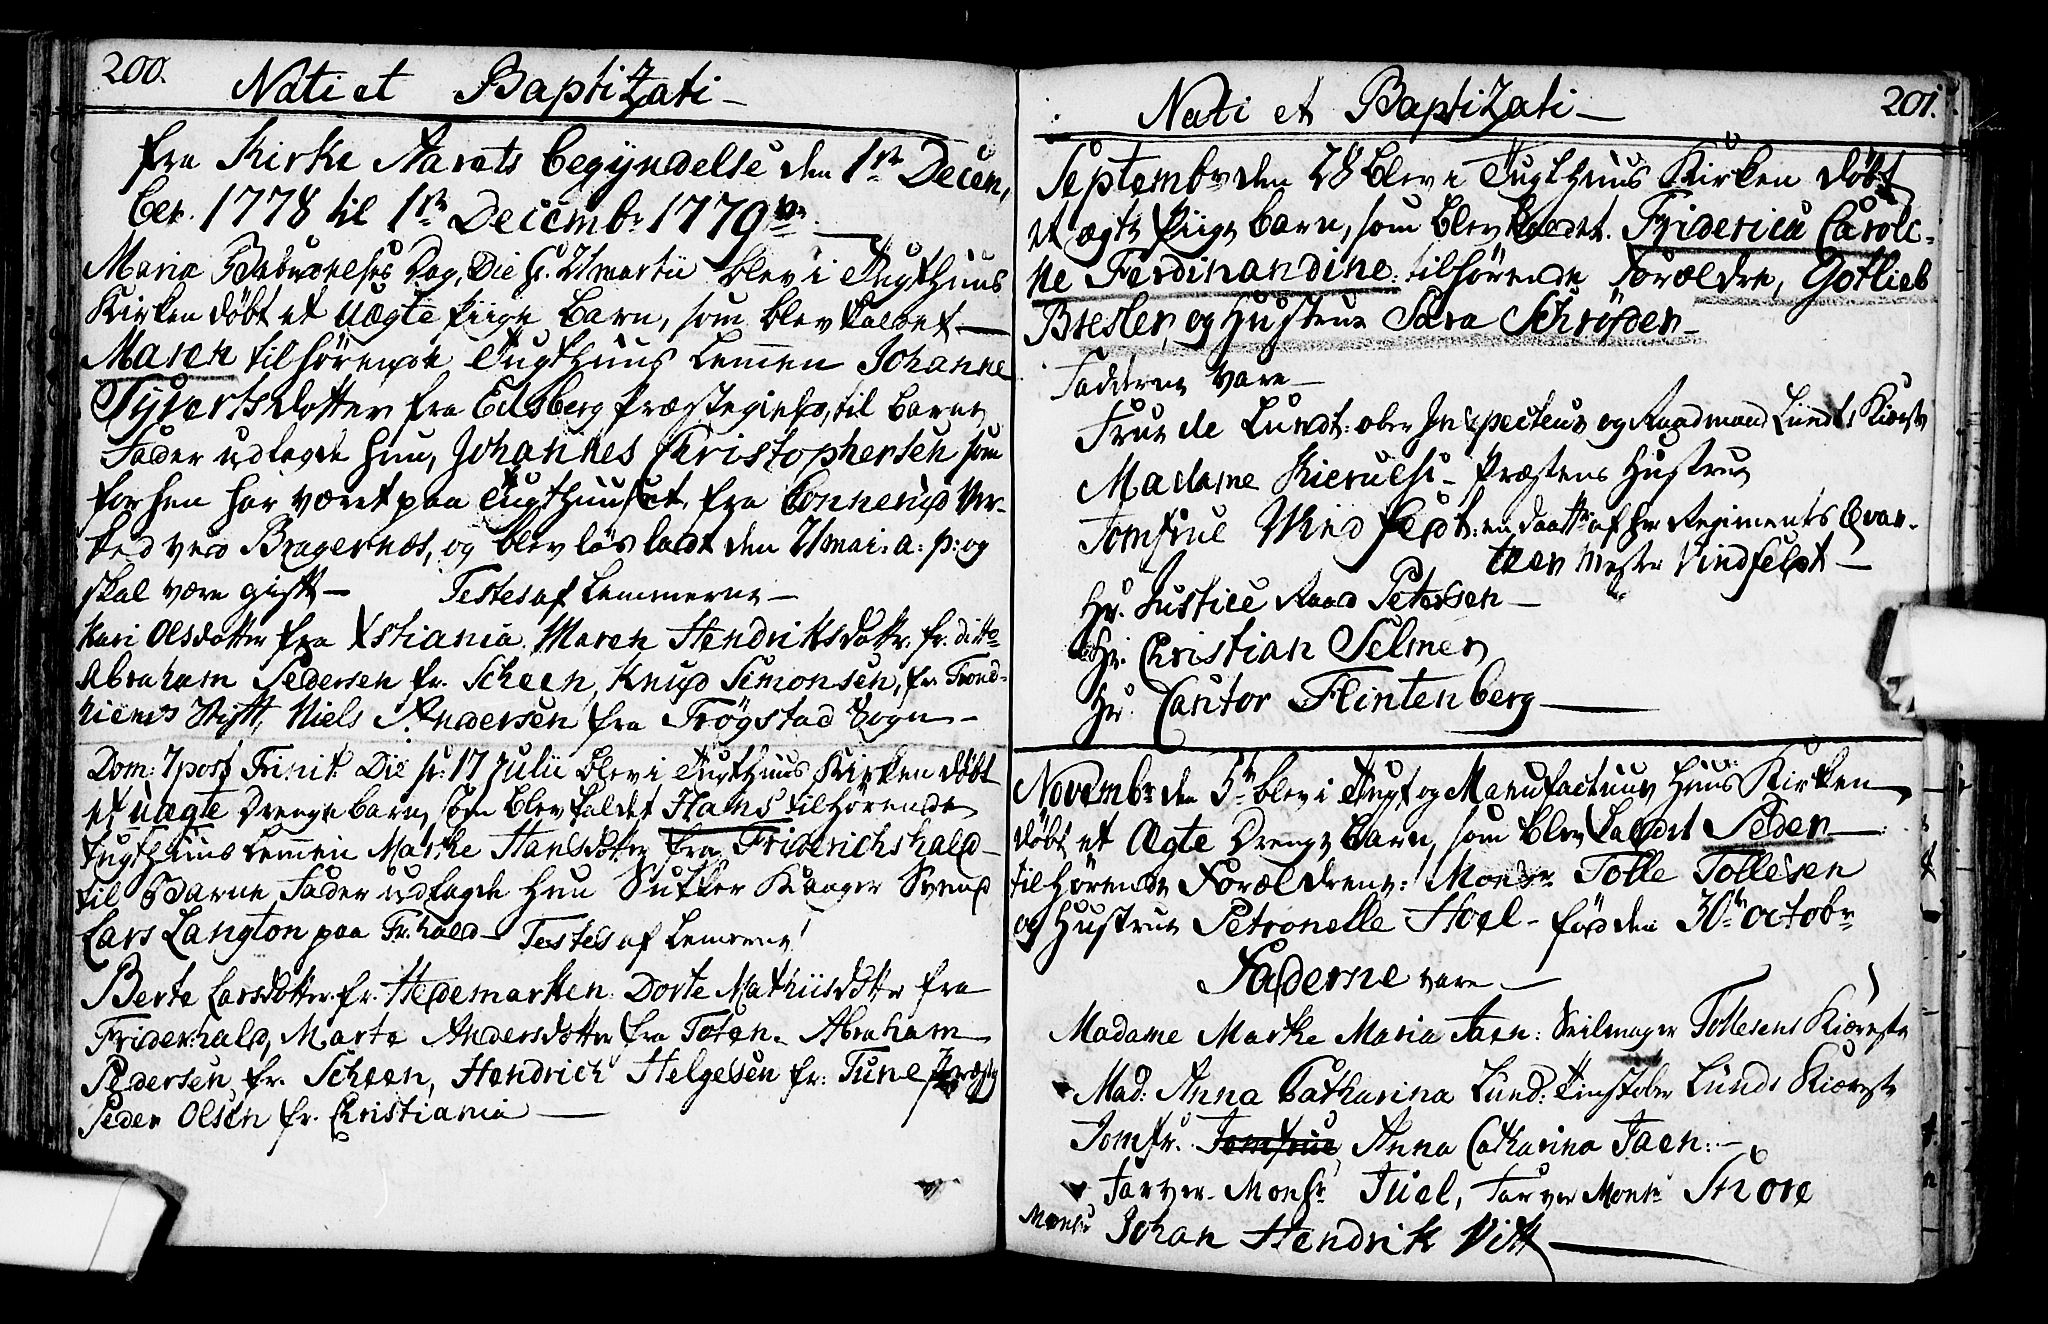 200.
Nati et Baptizati —
fra Kirke Aarets begÿndelse den 1ste Decem,
ber. 1778 til 1ste Decembr 1779 —
Mariæ Bebudelses Dag, Die s. 21 martii blev i Tugthuus
Kirken døbt et uægte Piige Barn, som blev kaldet —
Maren tilhørende Tugthuus Lemmen Johanne
Syvertsdotter fra Edsberg Præstegield, til Barne
Fader udlagde hun, Johannes Christophersen som
forhen har været paa Tugthuuset, fra Connerud Ver-
ked ved Bragernæs, og blev løs ladt den 21 mai. a: p: og
skal være gift — Testes af Lemmerne —
Kari Olsdotter fra Xstiania. Maren Hendriksdottr. fr. ditto
Abraham Pedersen fr. Scheen, Knud Simonsen, fr. Trond-
hiems Stift, Niels Andersen fra Trøgstad Sogn —
Dom: 7 post Trinit. Die s: 17 Julii blev i Tugthuus Kirken døbt
et uægte Drenge barn, som blev kaldet Hans tilhørende
Tugthuus Lemmen Marthe Hansdotter fra Friderichshald —
til Barne Fader udlagde Hun Sukker Svend
Lars Langton paa Fr.hald — Testes af Lemerne!
Berte Larsdotter fr. Hedemarken. Dorte Mathiisdotter fra
Frider:hald, Marte Andersdotter fra Toten. Abraham
Pedersen, fr. Scheen, Hendrich Helgesen fr: Tune Præsteg
Peder Olsen fr. Christiania —
201.
Nati et Baptizati —
Septembr den 28 blev i Tugthuus Kirken døbt
et ægte Piige barn, som blev kaldet. Friderica Caroli-
ne Ferdinandine: tilhørende Forældre, Gotlieb
Bresler, og Hustrue Sara Schrøder —
Fadderne vare —
Frue de Lundt: ober Inspecteur og Raadmand Lundts Kiæreste
Madame Kierulf — Præstens Hustrue
Jomfrue Windfeldt: en daatter af hr Regiments Qvar-
teer Mester Vindfeldt —
Hr. Justice Raad Petersen —
Hr. Christian Selmer
Hr. Cantor Flintenberg —
Novembr den 5te blev i Tugt og Manufactuur Huus Kirken
døbt et Ægte Drenge Barn, som blev kaldet Peder —
tilhørende Forældrene: Monsr. Tolle Tollesen
og Hustrue Petronelle Hoel — fød den 30te octobr
Fadderne vare —
Madame Marthe Maria Faen: Seilmager Tollesens Kiæreste
Mad: Anna Catharina Lund: Lunds Kiæreste
Jomfr. Jomfrue Anna Catharina Faen: —
Farver. Monsr Juel, Farver Monsr Thore
Monsr Johan Hendrik Vitt —